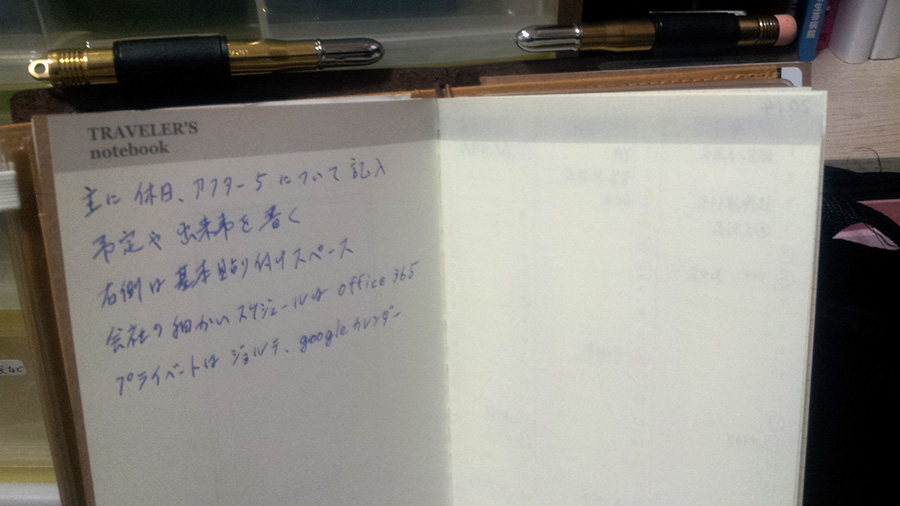 TRAVELER'S
notebook
主に休日、アフター5について記入
予定や出来事を書く
右側は基本貼り付けスペース
会社の細かいスケジュールは office 365
プライベートは ジョルテ、googleカレンダー